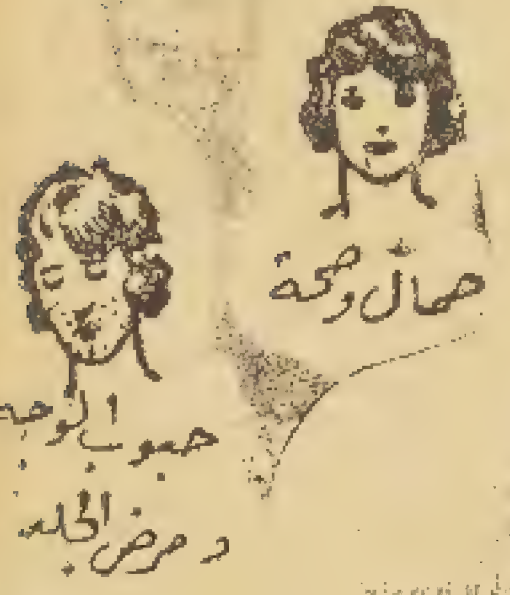 جمال وصحة
حبوب الوجه
و مرض الجلد